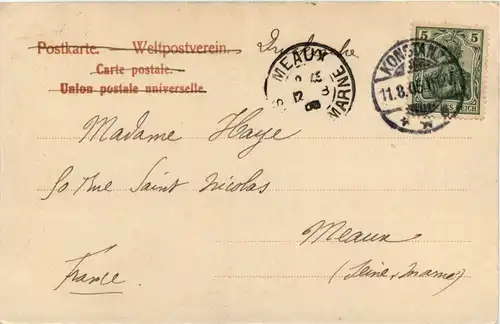 Postkarte. Weltpostverein. Drucksache
Carte postale.
Union postale universelle.
MEAUX
MARNE
KONSTANZ
11.8.05
5 5
REICH
Madame Haye
50 Rue Saint Nicolas
Meaux
(Seine & Marne)
France